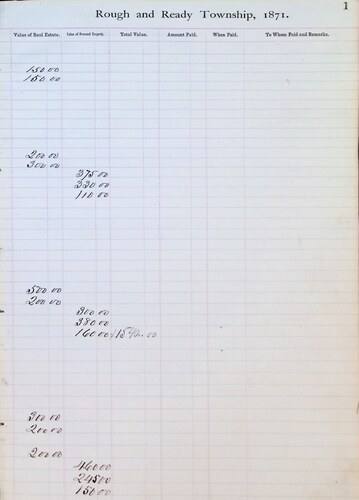 1
Rough and Ready Township, 1871.
Value of Real Estate. Value of Personal Property. Total Value. Amount Paid. When Paid. To Whom Paid and Remarks.
150 00
150 00
200 00
300 00
375 00
330 00
110 00
500 00
200 00
300 00
380 00
160 00
300 00
200 00
200 00
460 00
245 00
150 00